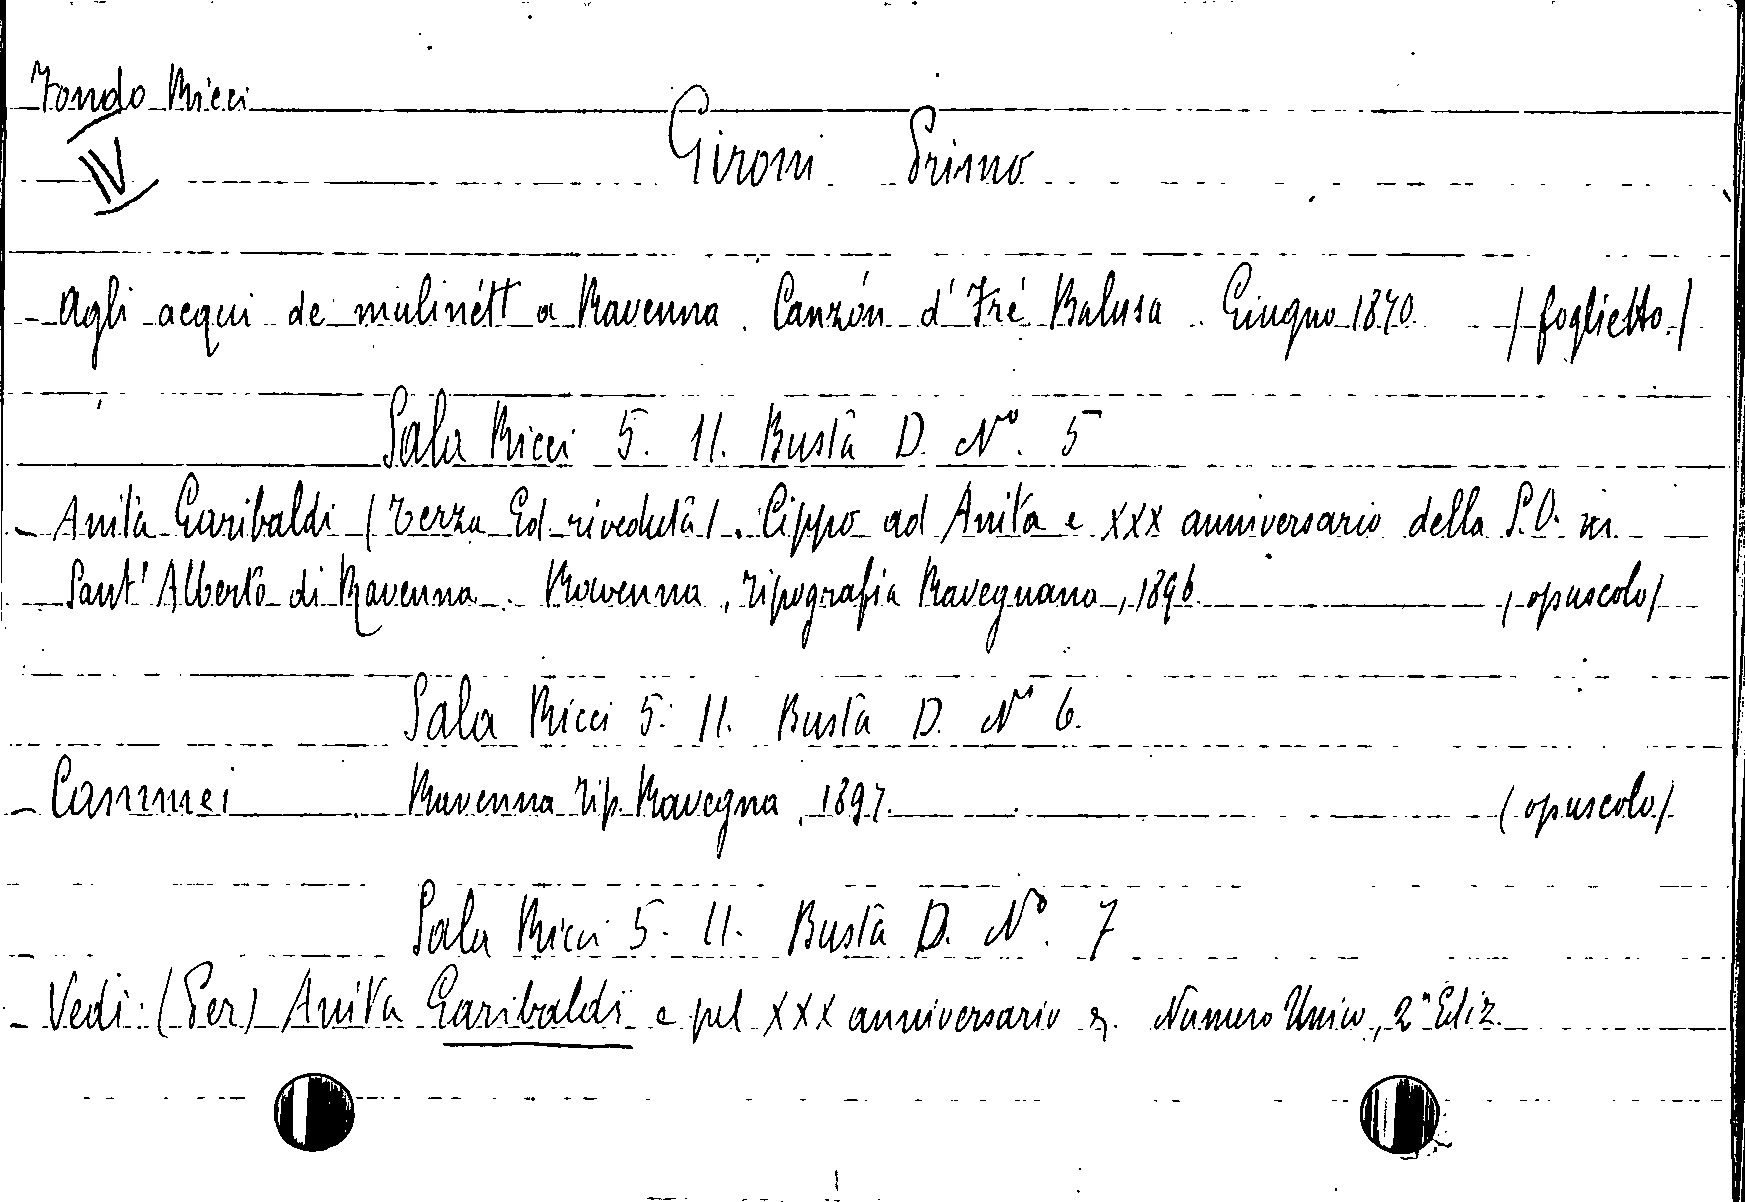 Fondo Ricci
Gironi Primo
IV
- Agli acqui de mulinétt a Ravenna. Canzón d' Fré Balusa. Giugno 1870. (foglietto.)
Sala Ricci 5. 11. Busta D. N°. 5
- Anita Garibaldi (Terza Ed. riveduta). Cippo ad Anita e XXX anniversario della S.O. in
Sant' Alberto di Ravenna. Ravenna, Tipografia Ravegnana, 1896. (opuscolo)
Sala Ricci 5. 11. Busta D. N° 6.
- Cammei Ravenna Tip. Ravegna, 1897. (opuscolo)
Sala Ricci 5. 11. Busta D. N°. 7
- Vedi: (Per) Anita Garibaldi e pel XXX anniversario &. Numero Unico, 2ª Ediz.